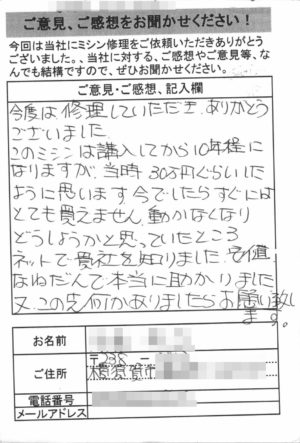 ご意見、ご感想をお聞かせください！
今回は当社にミシン修理をご依頼いただきありがとう
ございました。、当社に対する、ご感想やご意見等、な
んでも結構ですので、ぜひお聞かせください。
ご意見・ご感想、記入欄
今度は修理していただき、ありがとう
ございました
このミシンは購入してから10年程に
なりますが、当時30万円ぐらいした
ように思います今でしたらすぐには
とても買えません、動かなくなり
どうしようかと思っていたところ
ネットで貴社を知りました、安値
なねだんで本当に助かりました
又、この先何かありましたらお願い致し
ます。
お名前
ご住所
〒238 -
横須賀市
電話番号
メールアドレス